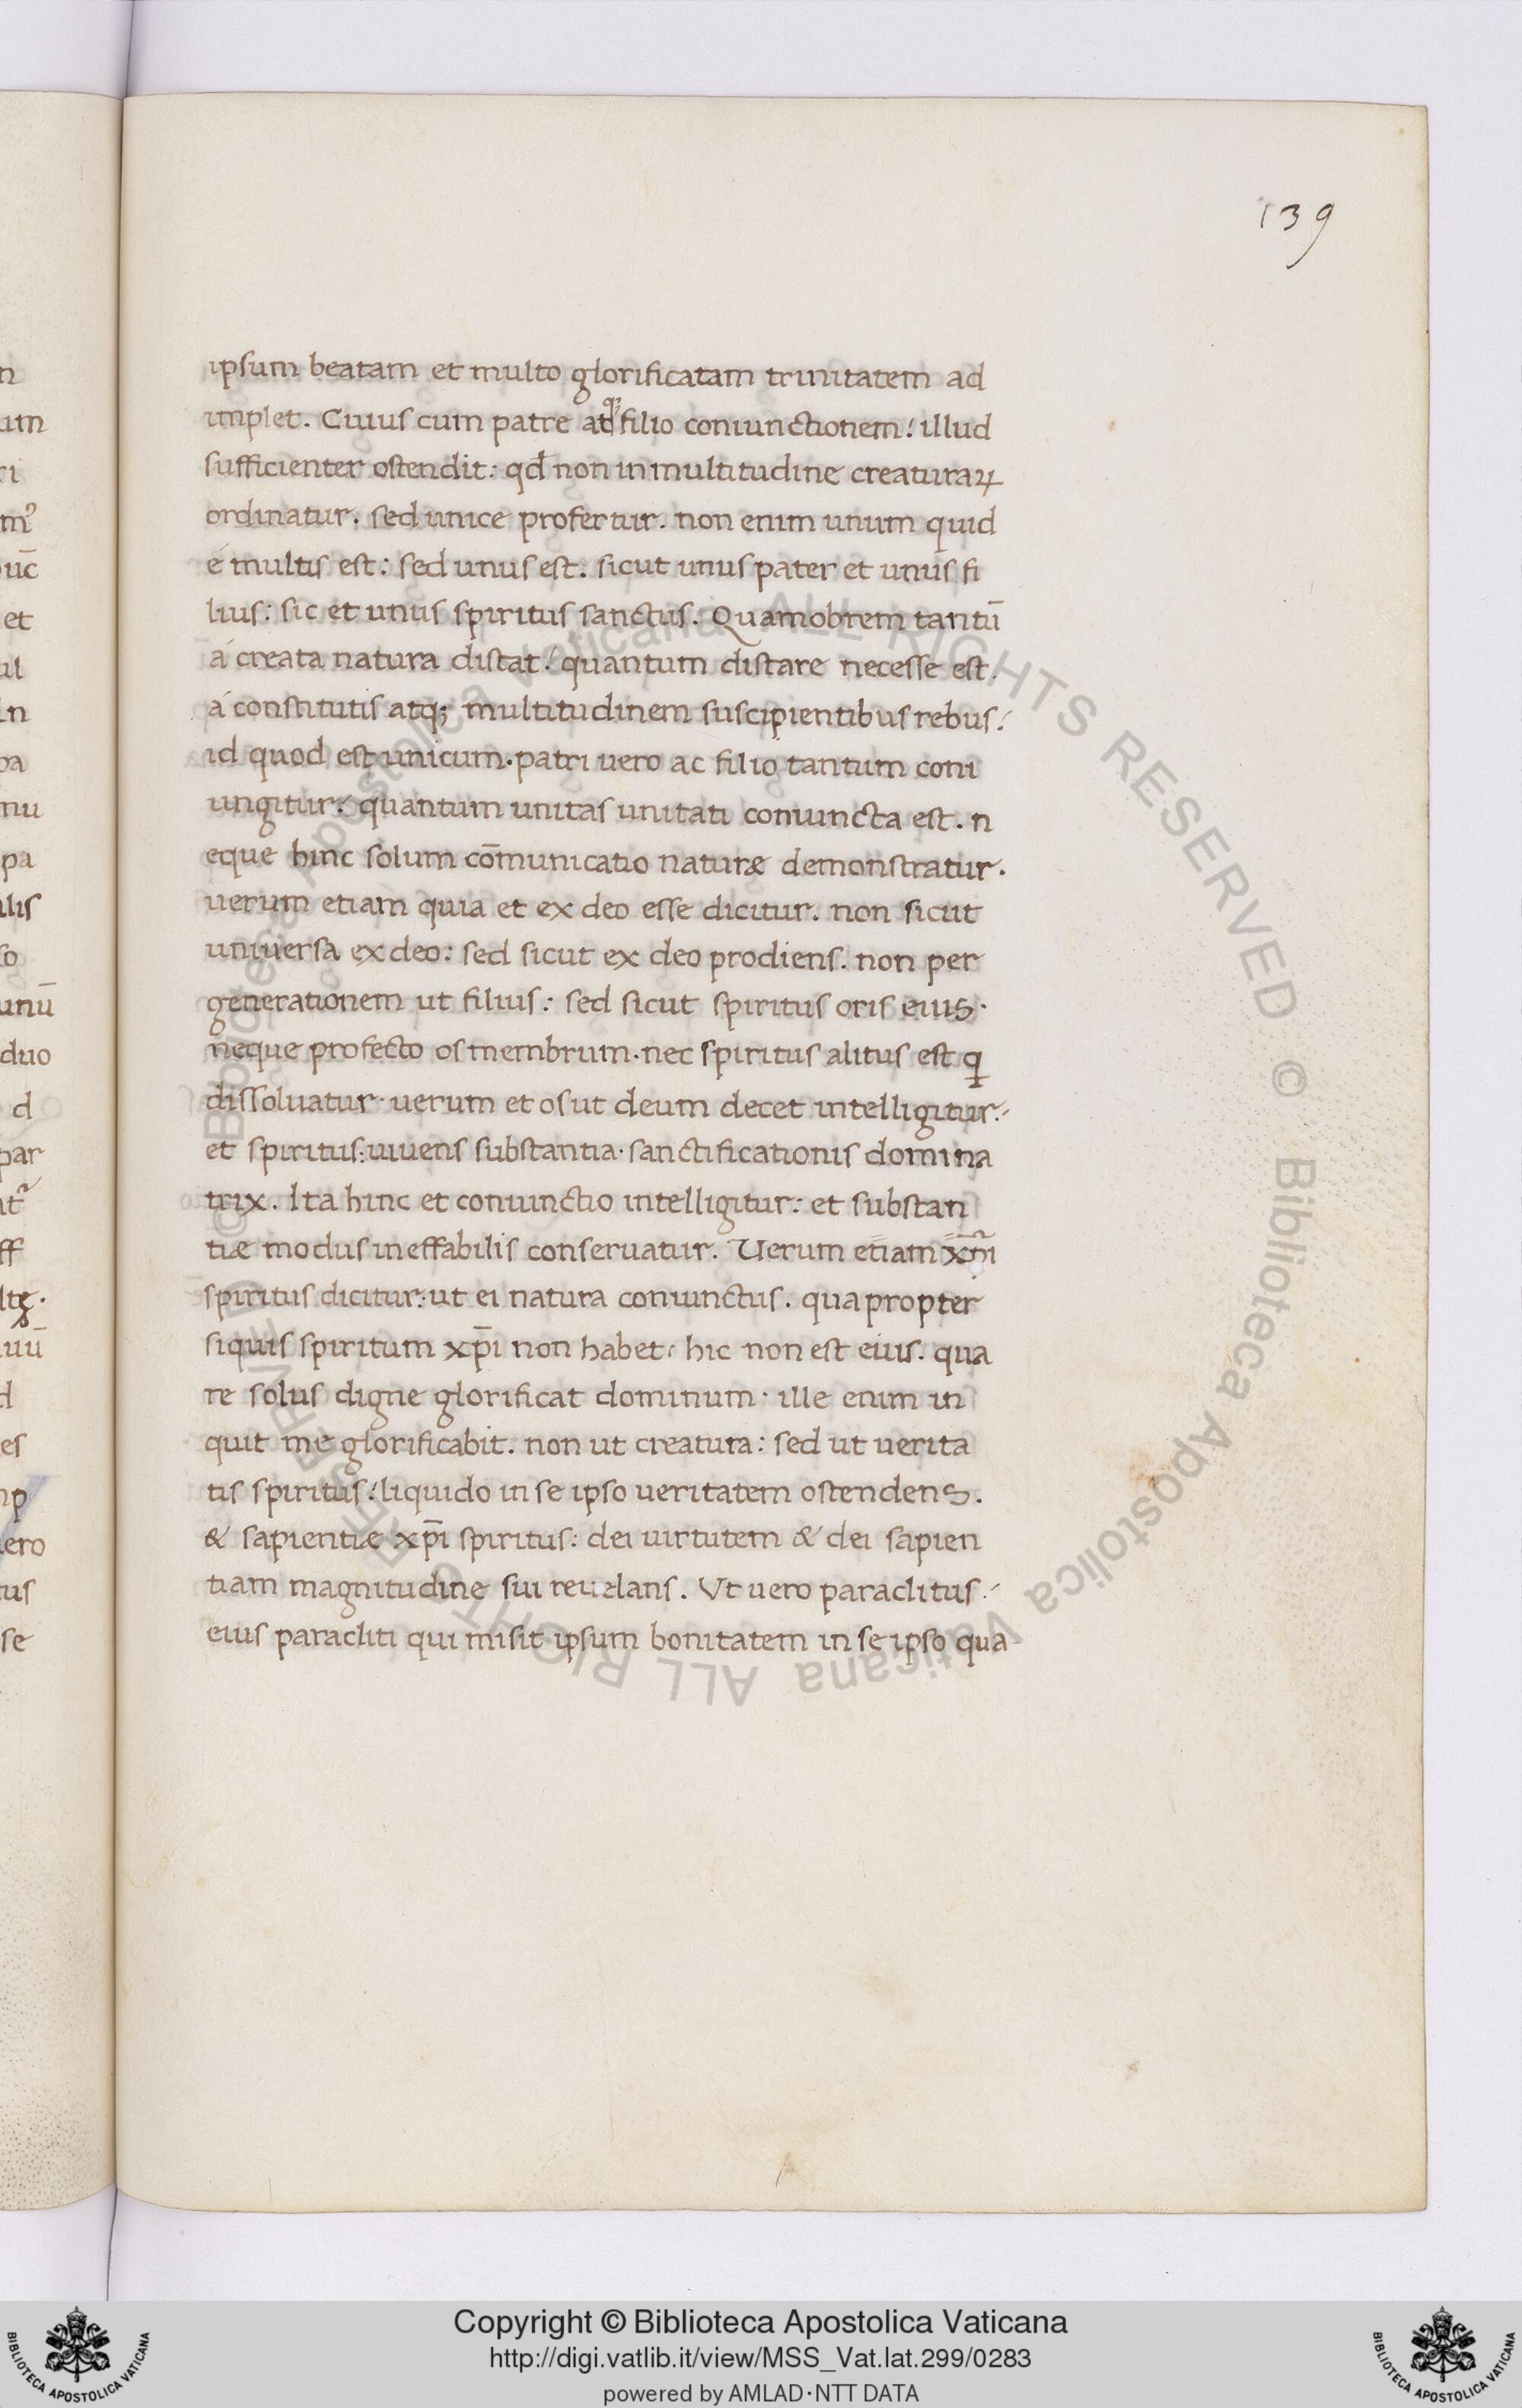 139
ipsum beatam et multo glorificatam trinitatem ad
implet. Cuius cum patre atq; filio coniunctionem: illud
sufficienter ostendit: qđ non in multitudine creaturaꝝ
ordinatur. sed unice profertur. non enim unum quid
é multis est: sed unus est. sicut unus pater et unus fi
lius: sic et unus spiritus sanctus. Quamobrem tantū
á creata natura distat: quantum distare necesse est.
á constitutis atq; multitudinem suscipientibus rebus:
id quod est unicum. patri vero ac filio tantum coni
ungitur: quantum unitas unitati coniuncta est. n
eque hinc solum cōmunicatio naturæ demonstratur.
uerum etiam quia et ex deo esse dicitur. non sicut
universa ex deo: sed sicut ex deo prodiens. non per
generationem ut filius: sed sicut spiritus oris eius.
neque profecto os membrum. nec spiritus alitus est q
dissoluatur. uerum et os ut deum decet intelligitur:
et spiritus: uiuens substantia. sanctificationis domina
trix. Ita hinc et coniunctio intelligitur: et substan
tiæ modus ineffabilis conseruatur. Uerum etiam
spiritus dicitur: ut ei natura coniunctus. quapropter
siquis spiritum xp̄i non habet: hic non est eius. qua
re solus digne glorificat dominum. ille enim in
quit me glorificabit. non ut creatura: sed ut uerita
tis spiritus: liquido in se ipso ueritatem ostendens.
& sapientiæ xp̄i spiritus: dei uirtutem & dei sapien
tiam magnitudine sui reuelans. Vt uero paraclitus:
eius paracliti qui misit ipsum bonitatem in se ipso qua
n
um
ri
et
ul
in
pa
nu
pa
ilis
so
unū
duo
d
par
ff
uū
d
es
ero
tus
se
© Biblioteca Apostolica Vaticana ALL RIGHTS RESERVED © Biblioteca Apostolica Vaticana ALL RIGHTS RESERVED
Copyright © Biblioteca Apostolica Vaticana
http://digi.vatlib.it/view/MSS_Vat.lat.299/0283
powered by AMLAD·NTT DATA
BIBLIOTECA APOSTOLICA VATICANA
BIBLIOTECA APOSTOLICA VATICANA